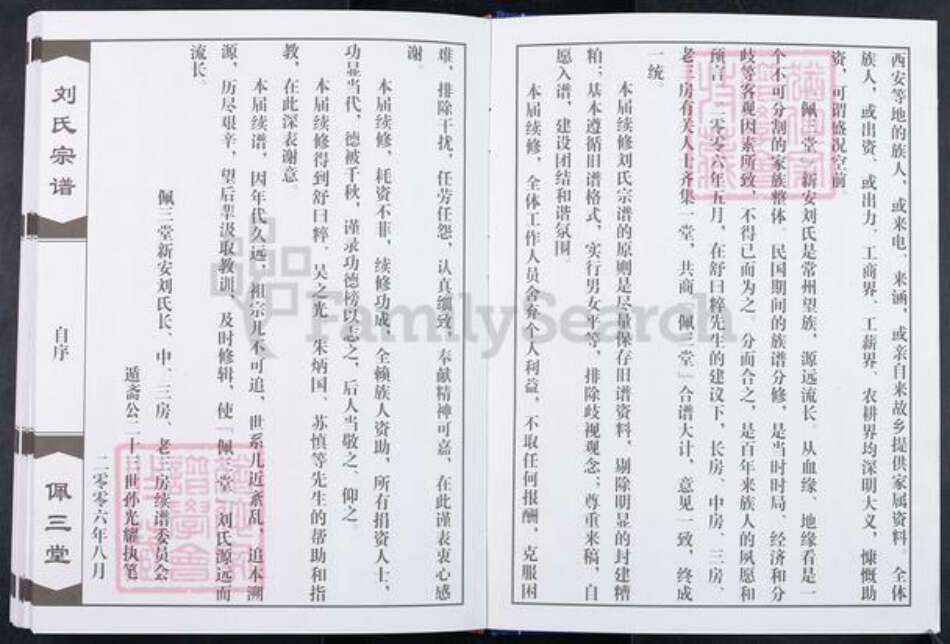 西安等地的族人，或来电、来涵，或亲自来故乡提供家属资料。全体
族人，或出资、或出力，工商界、工薪界、农耕界均深明大义，慷慨助
资，可谓盛况空前
佩三堂·新安刘氏是常州望族，源远流长。从血缘、地缘看是一
个不可分割的家族整体。民国期间的族谱分修，是当时时局、经济和分
歧等客观因素所致，不得已而为之。分而合之，是百年来族人的夙愿和
预言。二零零六年五月，在舒曰粹先生的建议下，长房、中房、三房、
老三房有关人士齐集一堂，共商「佩三堂」合谱大计，意见一致，终成
一统。
本届续修刘氏宗谱的原则是尽量保存旧谱资料，剔除明显的封建糟
粕；基本遵循旧谱格式，实行男女平等，排除歧视观念；尊重来稿，自
愿入谱，建设团结和谐氛围。
本届续修，全体工作人员舍弃个人利益，不取任何报酬，克服困
难，排除干扰，任劳任怨，认真细致，奉献精神可嘉，在此谨表衷心感
谢。
本届续修，耗资不菲，续修功成，全赖族人资助，所有捐资人士，
功显当代，德被千秋，谨录功德榜以志之，后人当敬之、仰之。
本届续修得到舒曰粹、吴之光、朱炳国、苏慎等先生的帮助和指
教，在此深表谢意。
本届续谱，因年代久远，祖宗几不可追，世系几近紊乱，追本溯
源，历尽艰辛，望后辈汲取教训，及时修辑，使「佩三堂」刘氏源远而
流长。
佩三堂新安刘氏长、中、三房、老三房续谱委员会
遁斋公二十三世孙光耀执笔
二零零六年八月
刘氏宗谱
自序
佩三堂
FamilySearch